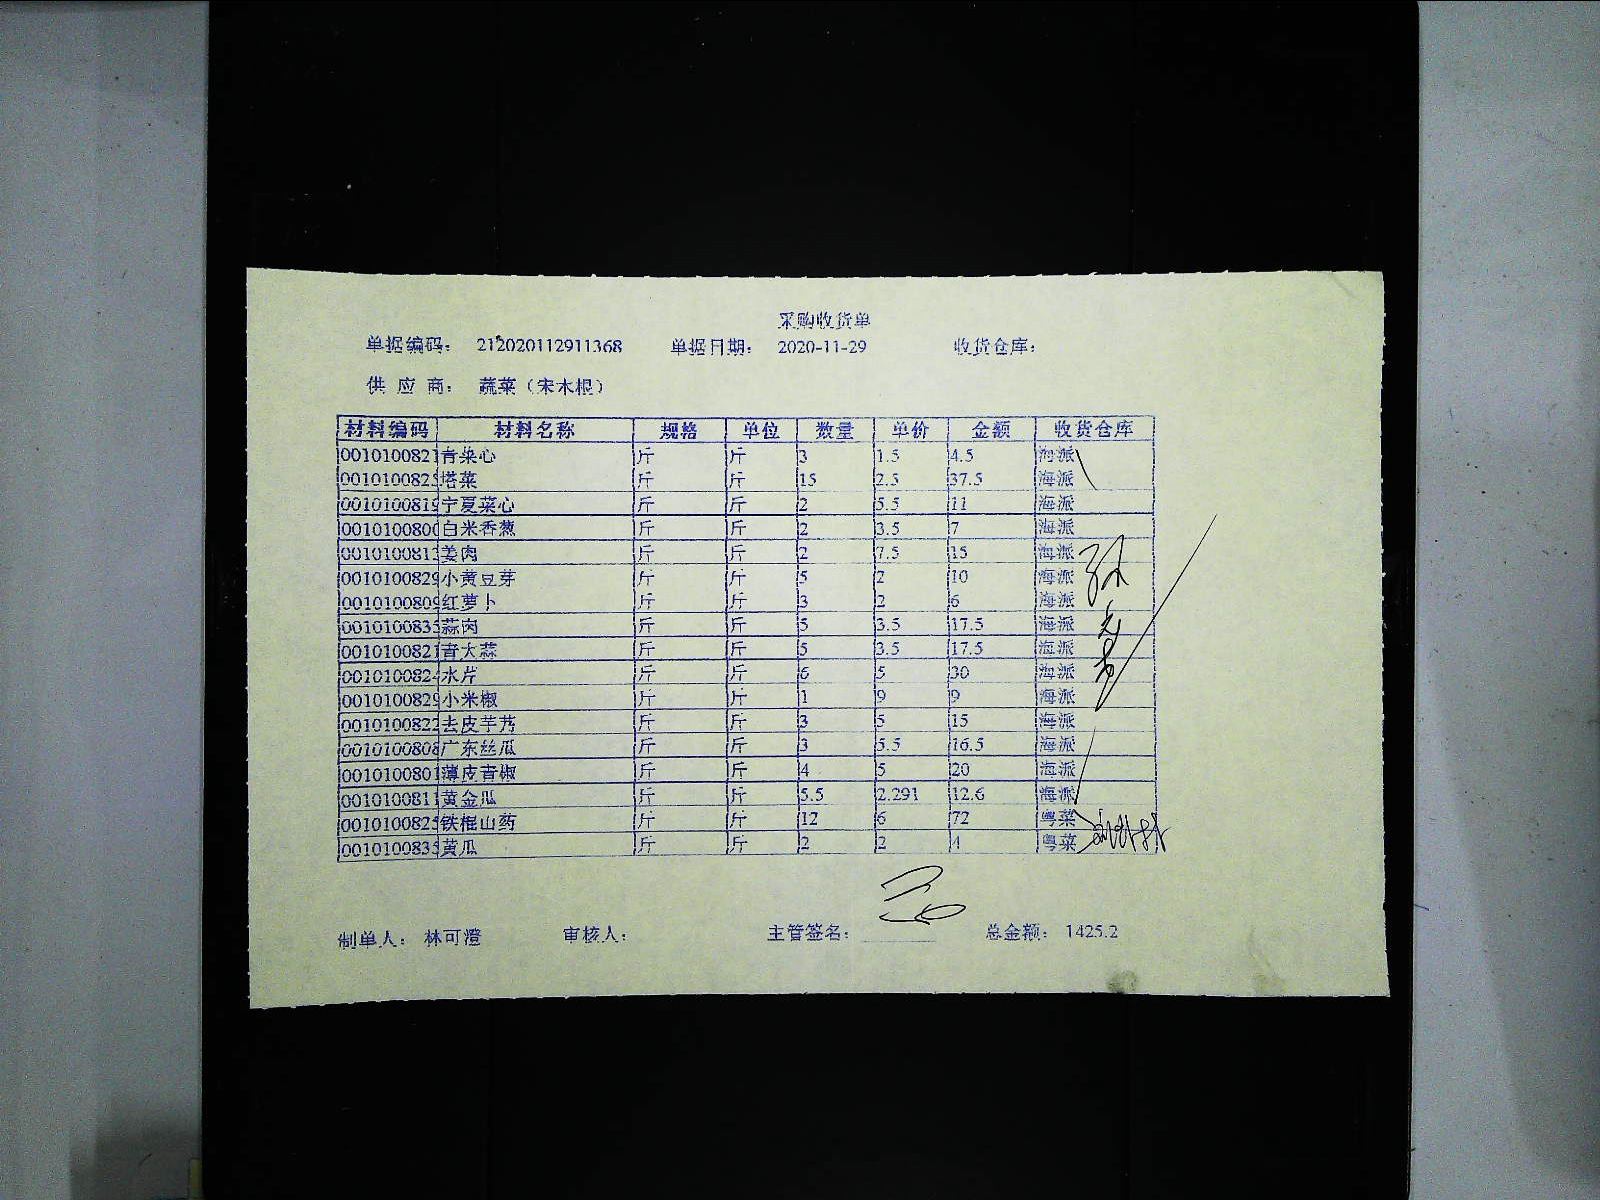 采购收货单
单据编码： 212020112911368 单据日期： 2020-11-29 收货仓库：
供 应 商： 蔬菜（宋木根）
材料编码 材料名称 规格 单位 数量 单价 金额 收货仓库
0010100821 青菜心 斤 斤 3 1.5 4.5 海派
001010082 塔菜 斤 斤 15 2.5 37.5 海派
001010081 宁夏菜心 斤 斤 2 5.5 11 海派
001010080 白米香葱 斤 斤 2 3.5 7 海派
001010081 姜肉 斤 斤 2 7.5 15 海派
001010082 小黄豆芽 斤 斤 5 2 10 海派
001010080 红萝卜 斤 斤 3 2 6 海派
001010083 蒜肉 斤 斤 5 3.5 17.5 海派
0010100821 青大蒜 斤 斤 5 3.5 17.5 海派
001010082 水芹 斤 斤 6 5 30 海派
001010082 小米椒 斤 斤 1 9 9 海派
0010100822 去皮芋艿 斤 斤 3 5 15 海派
0010100808 广东丝瓜 斤 斤 3 5.5 16.5 海派
0010100801 薄皮青椒 斤 斤 4 5 20 海派
0010100811 黄金瓜 斤 斤 5.5 2.291 12.6 海派
001010082 铁棍山药 斤 斤 12 6 72 粤菜
001010083 黄瓜 斤 斤 2 2 4 粤菜
制单人： 林可澄 审核人： 主管签名： 总金额： 1425.2